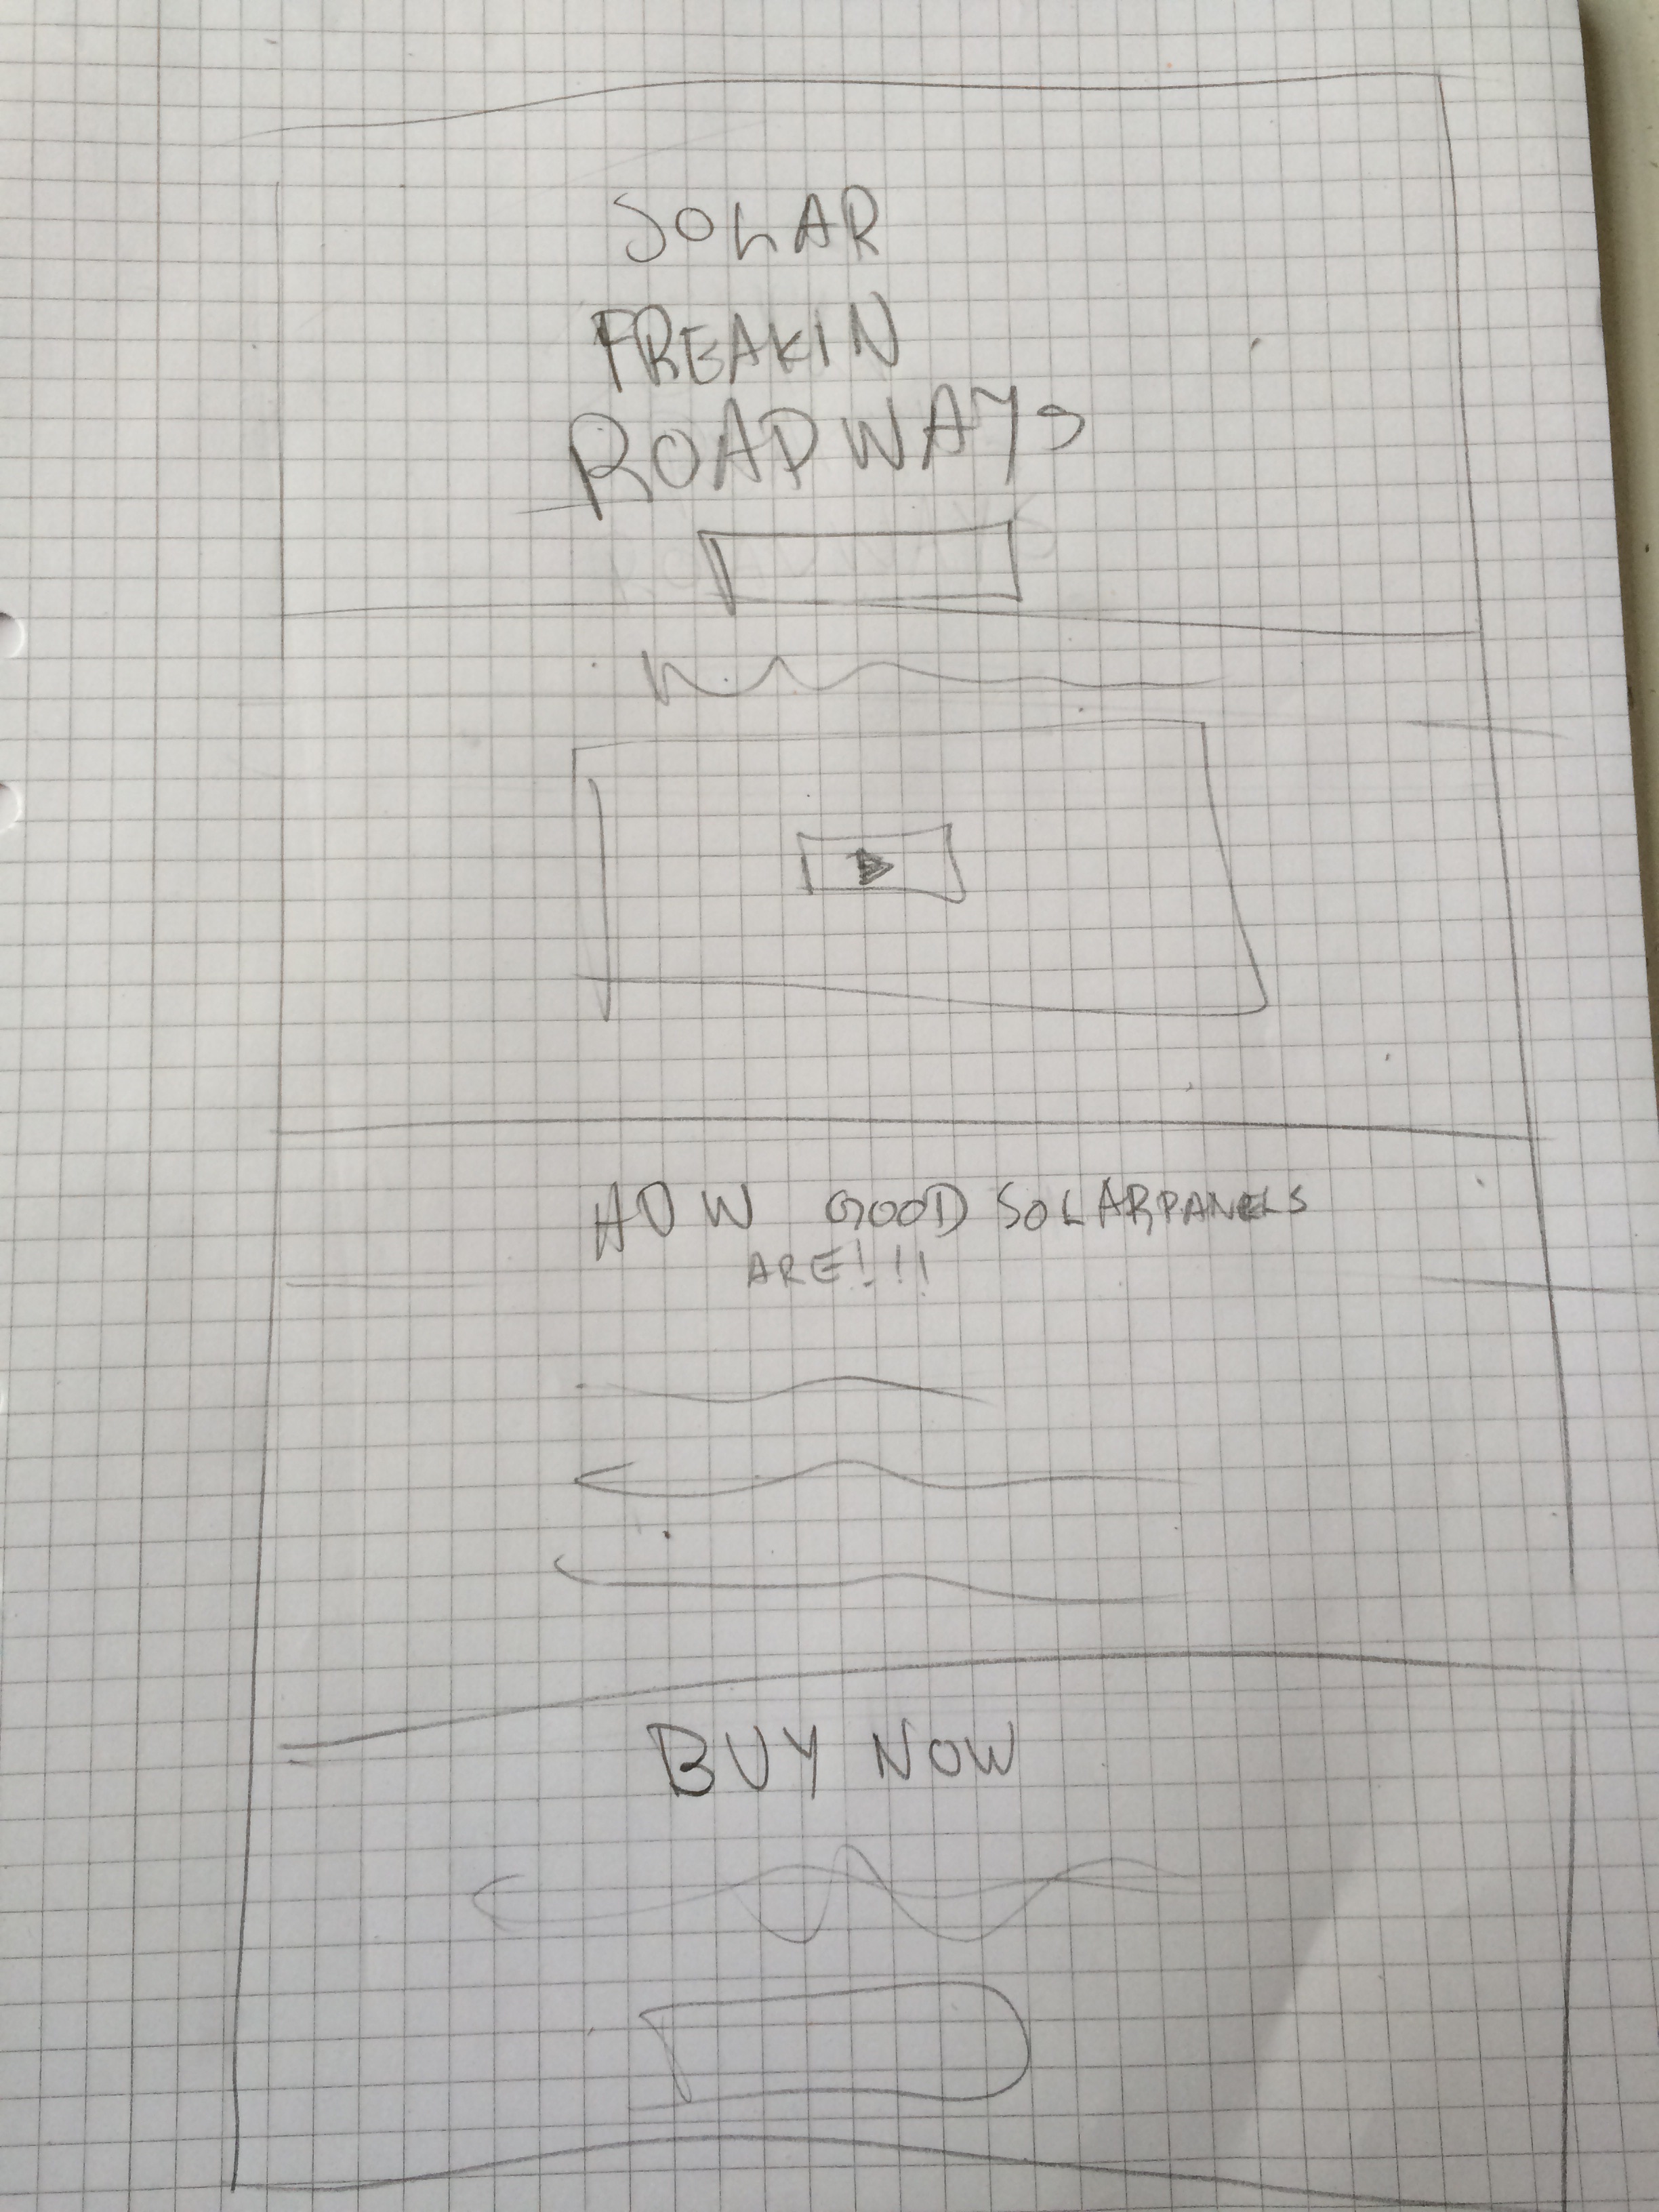 SOLAR
FREAKIN
ROADWAYS
HOW GOOD SOLARPANELS
ARE!!!
BUY NOW